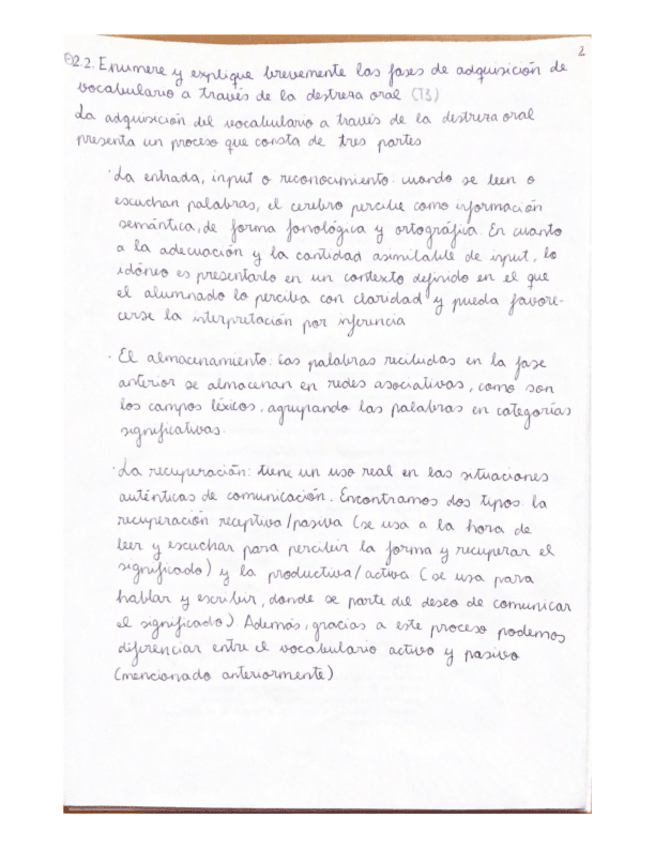 2
2.2. Enumere y explique brevemente las fases de adquisición de
vocabulario a través de la destreza oral (T3)
La adquisición del vocabulario a través de la destreza oral
presenta un proceso que consta de tres partes
· La entrada, input o reconocimiento: cuando se leen o
escuchan palabras, el cerebro percibe como información
semántica, de forma fonológica y ortográfica. En cuanto
a la adecuación y la cantidad asimilable de input, lo
idóneo es presentarlo en un contexto definido en el que
el alumnado lo perciba con claridad y pueda favore-
cerse la interpretación por inferencia
· El almacenamiento: las palabras recibidas en la fase
anterior se almacenan en redes asociativas, como son
los campos léxicos, agrupando las palabras en categorías
significativas.
· La recuperación: tiene un uso real en las situaciones
auténticas de comunicación. Encontramos dos tipos: la
recuperación receptiva/pasiva (se usa a la hora de
leer y escuchar para percibir la forma y recuperar el
significado) y la productiva/activa (se usa para
hablar y escribir, donde se parte del deseo de comunicar
el significado). Además, gracias a este proceso podemos
diferenciar entre el vocabulario activo y pasivo
(mencionado anteriormente)